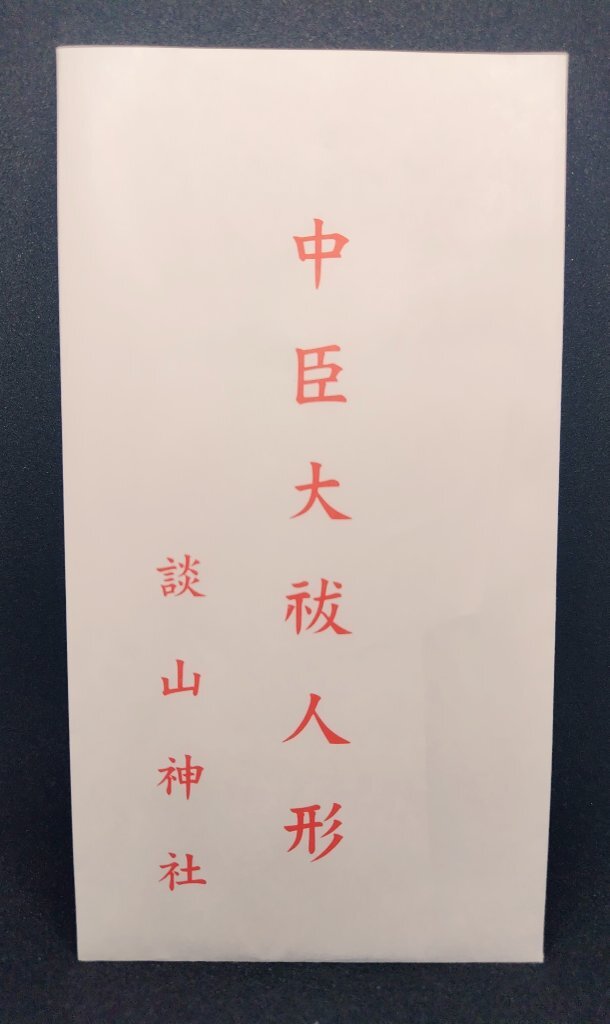 中臣大祓人形
談山神社